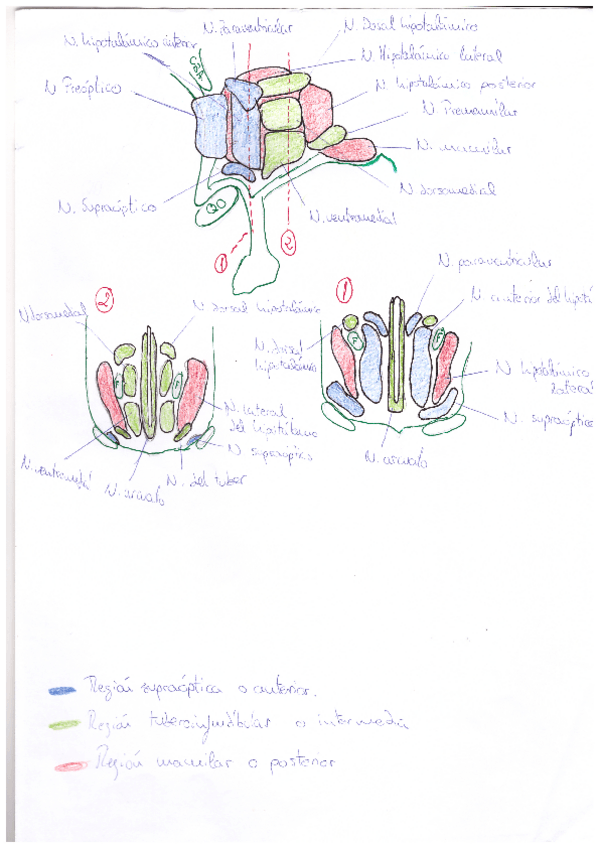 N. Paraventricular
N. Dorsal hipotalámico
N. hipotalámico anterior
N. Hipotalámico lateral
N. Preóptico
N. hipotalámico posterior
N. Premamilar
N. mamilar
N. Supraóptico
QO
N. dorsomedial
N. ventromedial
1
2
2
N. dorsomedial
N. dorsal hipotalámico
F
F
N. lateral
del hipotálamo
N. supraóptico
N. ventromedial
N. arcuato
N. del tuber
1
N. paraventricular
N. anterior del hipotá
N. dorsal
hipotalámico
F
F
N. hipotalámico
lateral
N. supraóptico
N. arcuato
Región supraóptica o anterior.
Región tuberoinfundibular o intermedia
Región mamilar o posterior